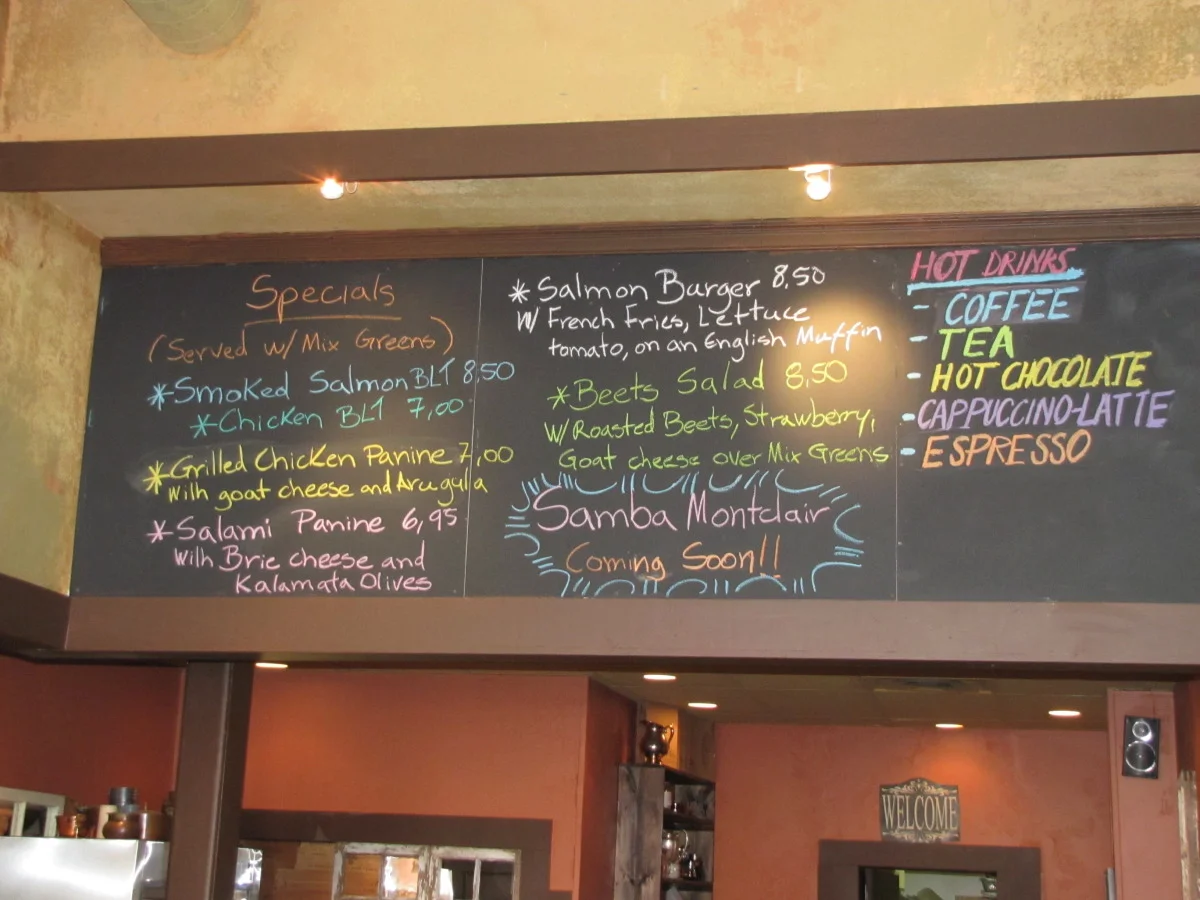 Specials
(Served w/ Mix Greens)
*Smoked Salmon BLT 8,50
*Chicken BLT 7,00
*Grilled Chicken Panine 7,00
with goat cheese and Arugula
*Salami Panine 6,95
with Brie cheese and
Kalamata Olives
*Salmon Burger 8,50
w/ French Fries, Lettuce
tomato, on an English Muffin
*Beets Salad 8,50
w/ Roasted Beets, Strawberry,
Goat cheese over Mix Greens
Samba Montclair
Coming Soon!!
HOT DRINKS
- COFFEE
- TEA
- HOT CHOCOLATE
- CAPPUCCINO-LATTE
- ESPRESSO
WELCOME